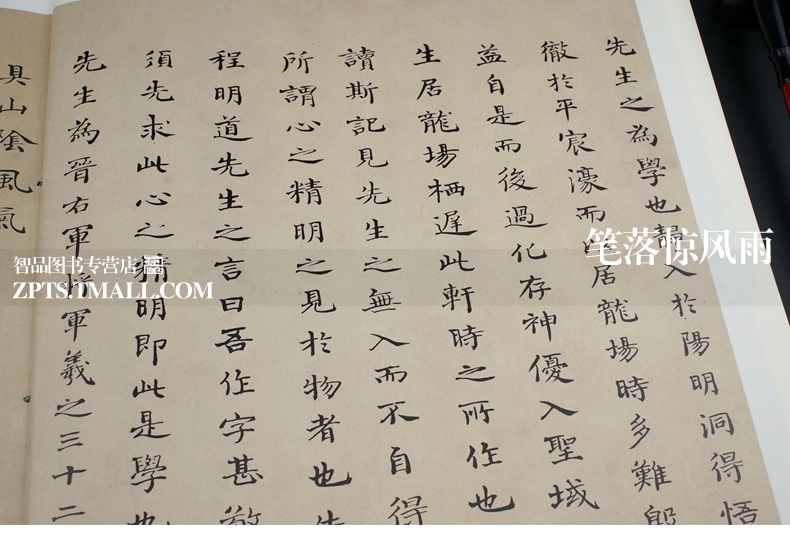 先生之為學也入於陽明洞得悟
徹於平宸濠而居龍場時多難
益自是而後過化存神優入聖域
生居龍場栖遲此軒時之所作也
讀斯記見先生之無入而不自得
所謂心之精明之見於物者也
程明道先生之言曰吾作字甚敬
須先求此心之精明即此是學也
先生為晉右軍將軍羲之三十二
具山陰風氣
笔落惊风雨
智品图书专营店
ZPTS.TMALL.COM